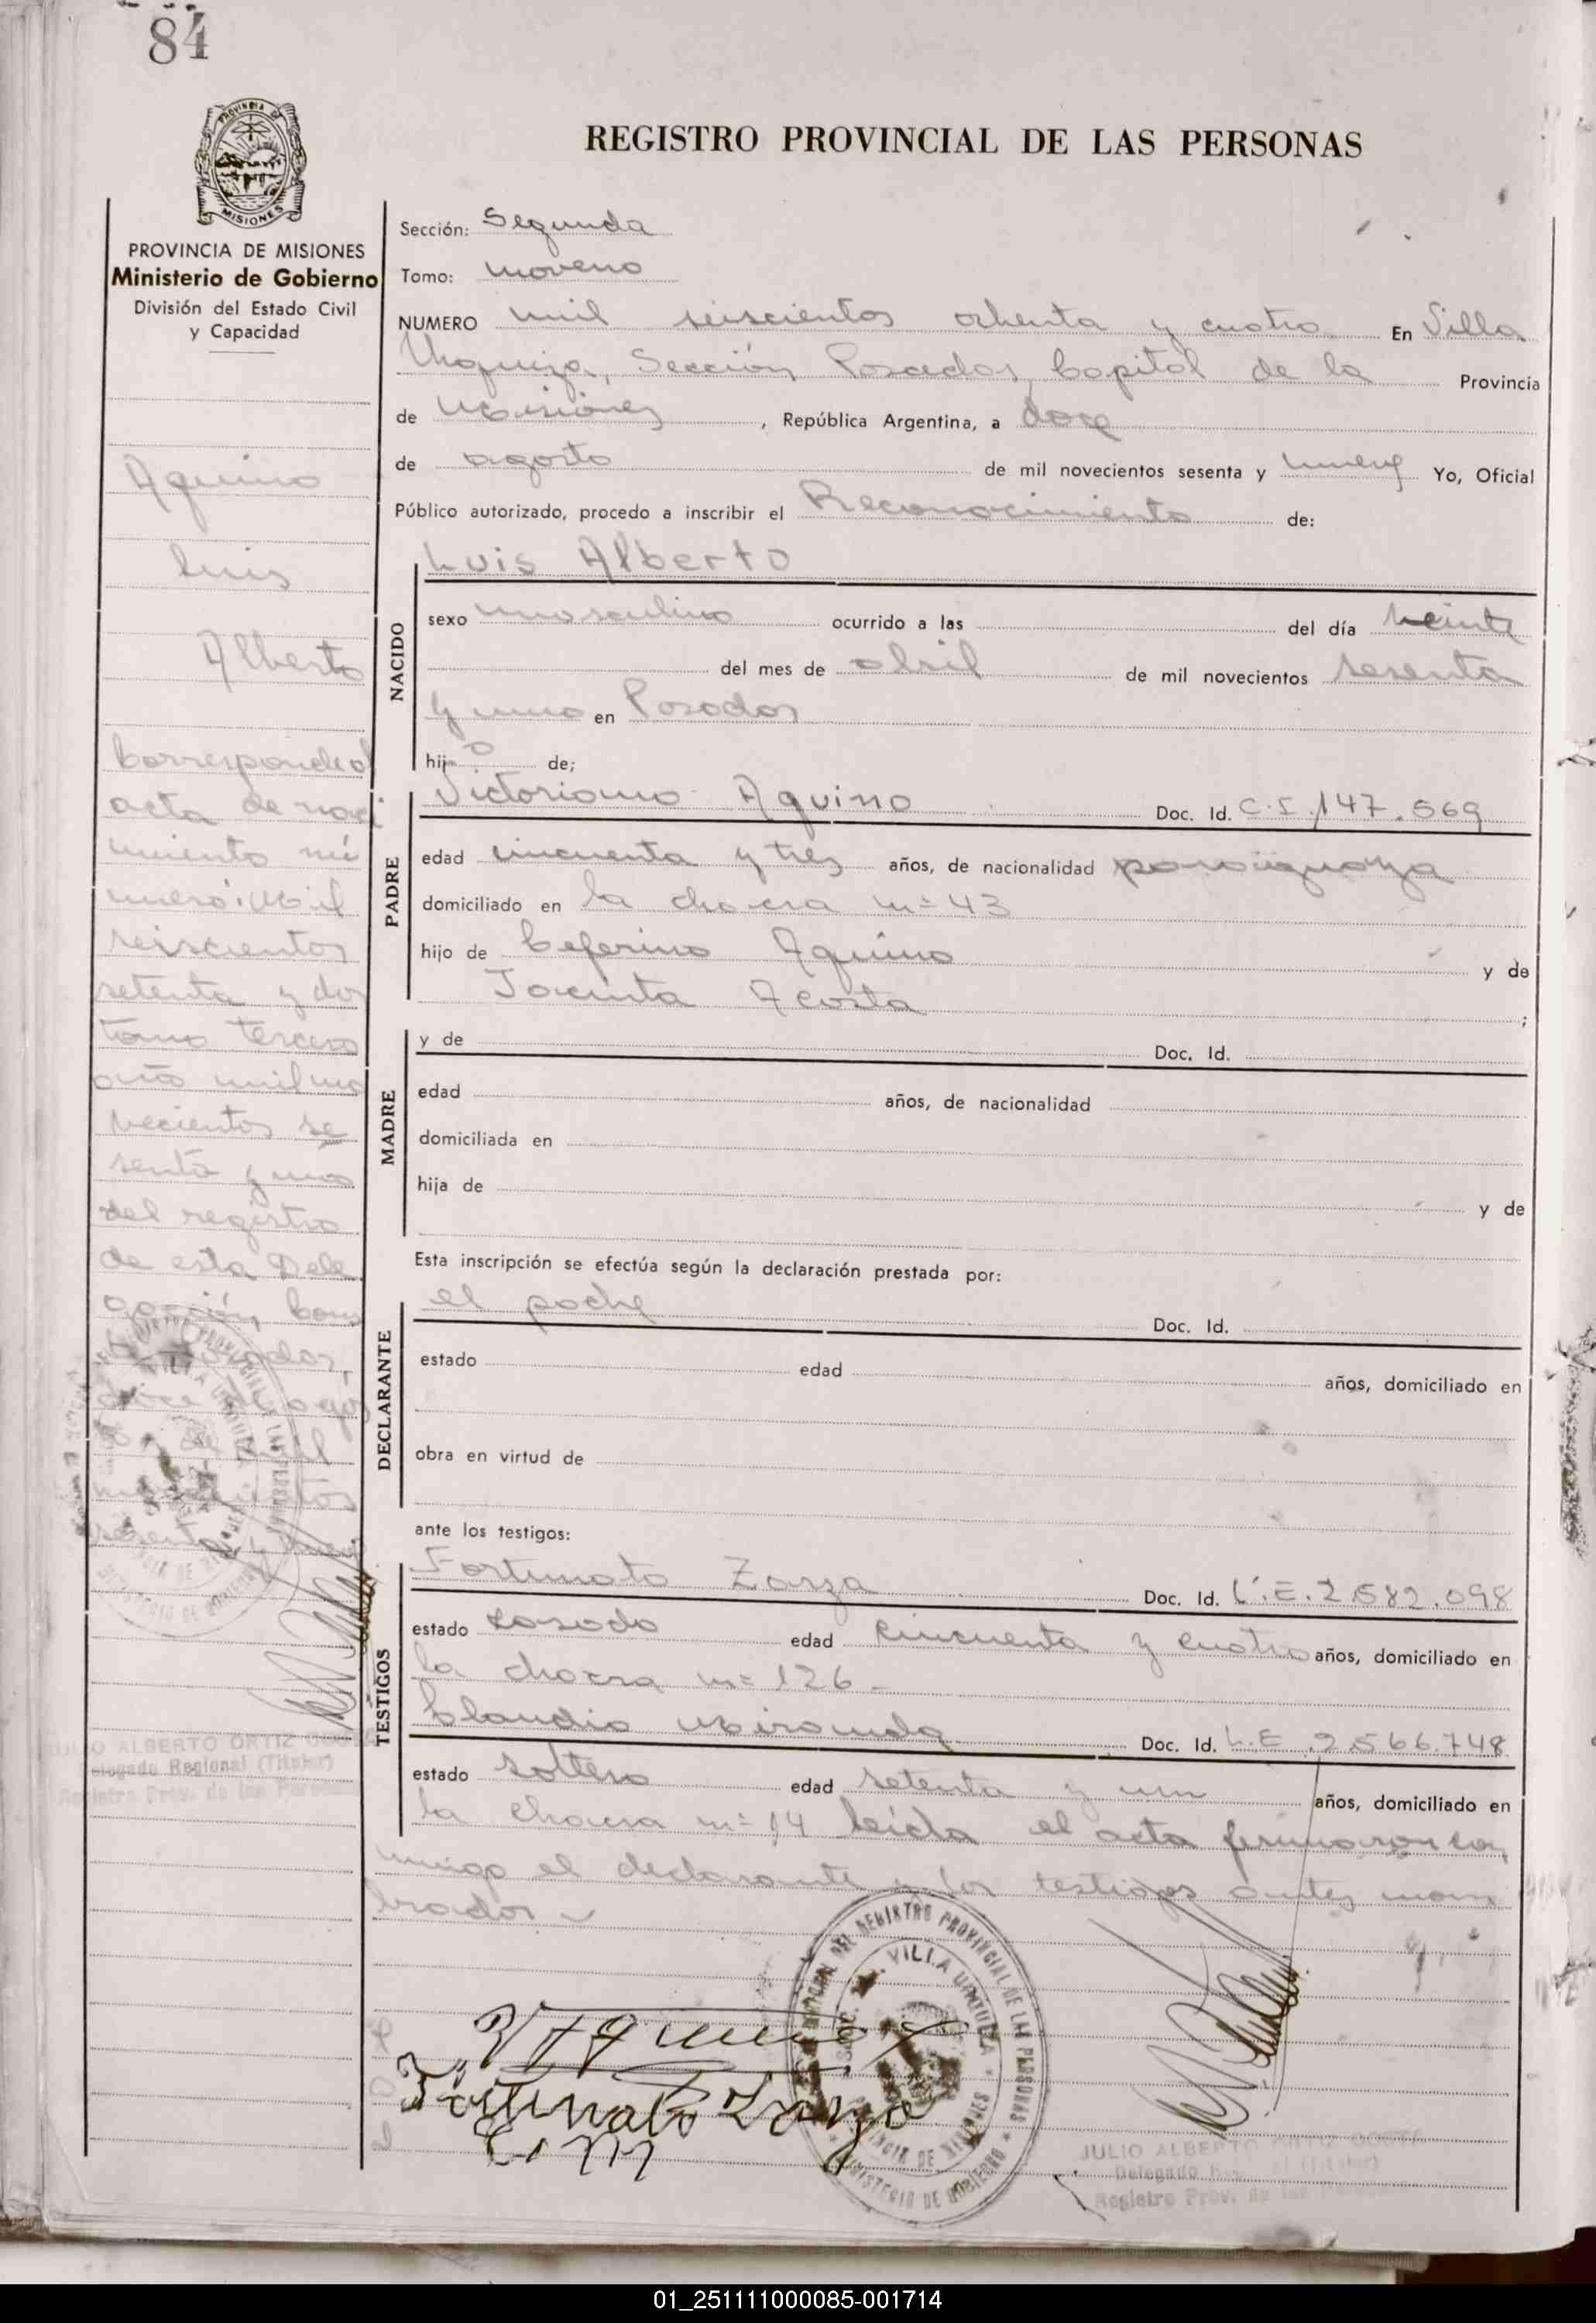 84
PROVINCIA DE MISIONES
Ministerio de Gobierno
División del Estado Civil
y Capacidad
Aquino
Luis
Alberto
Corresponde al
acta de naci
miento nú
mero: Mil
seiscientos
setenta y dos
tomo tercero
año mil no
vecientos se
senta y uno
del registro
de esta Dele
gación, Cons
doce de agos
to de mil
novecientos
sesenta y nueve
JULIO ALBERTO ORTIZ COSTA
Delegado Regional (Titular)
Registro Prov. de las Personas
REGISTRO PROVINCIAL DE LAS PERSONAS
Sección: Segunda
Tomo: noveno
NUMERO mil seiscientos ochenta y cuatro En Villa
Urquiza, Sección Posadas, Capital de la Provincia
de Misiones, República Argentina, a doce
de agosto de mil novecientos sesenta y nueve Yo, Oficial
Público autorizado, procedo a inscribir el Reconocimiento de:
NACIDO
Luis Alberto
sexo masculino ocurrido a las del día veinte
del mes de abril de mil novecientos sesenta
y uno en Posadas
hijo de;
PADRE
Victoriano Aquino Doc. Id. C.I. 147.569
edad cincuenta y tres años, de nacionalidad paraguaya
domiciliado en la chacra nº 43
hijo de Ceferino Aquino y de
Jacinta Acosta ;
MADRE
y de Doc. Id.
edad años, de nacionalidad
domiciliada en
hija de y de
Esta inscripción se efectúa según la declaración prestada por:
DECLARANTE
el padre Doc. Id.
estado edad años, domiciliado en
obra en virtud de
ante los testigos:
TESTIGOS
Fortunato Zarza Doc. Id. L.E. 2.582.098
estado casado edad cincuenta y cuatro años, domiciliado en
la chacra nº 126 -
Claudio Miranda Doc. Id. L.E. 2.566.748
estado soltero edad setenta y un años, domiciliado en
la chacra nº 14 leída el acta firmaron con
migo el declarante y los testigos antes nom
brados
V Aquino
Fortunato Zarza
JULIO ALBERTO ORTIZ COSTA
Delegado Regional (Titular)
Registro Prov. de las Personas
01_251111000085-001714